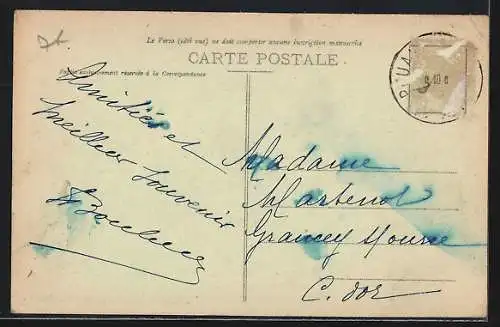 Le Verso (côté vue) ne doit comporter aucune inscription manuscrite
CARTE POSTALE
Partie exclusivement réservée à la Correspondance
Amitiés et
meilleur souvenir
Madame
Martenot
Grancey
C. d'or